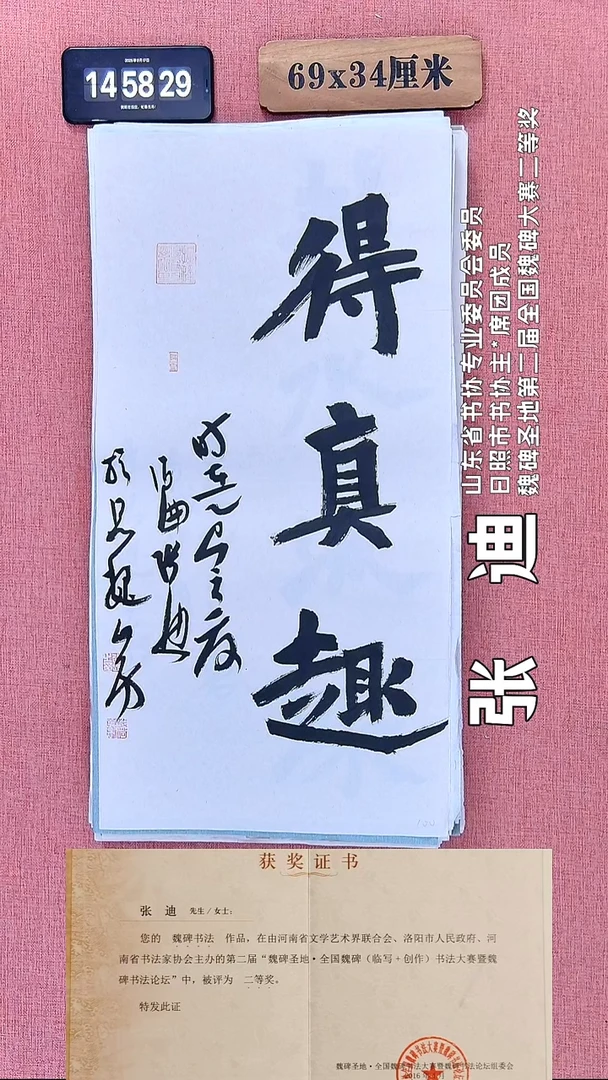 14 58 29
69x34厘米
得真趣
山东省书协专业委员会委员
日照市书协主*席团成员
魏碑圣地第二届全国魏碑大赛二等奖
张 迪
获奖证书
张 迪 先生/女士:
您的 魏碑书法 作品,在由河南省文学艺术界联合会、洛阳市人民政府、河
南省书法家协会主办的第二届“魏碑圣地·全国魏碑(临写+创作)书法大赛暨魏
碑书法论坛”中,被评为 二等奖。
特发此证
魏碑圣地·全国魏碑书法大赛暨魏碑书法论坛组委会